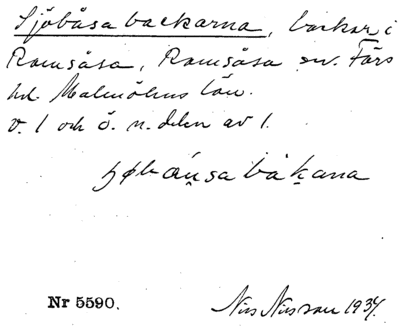 Sjöbåsabackarna, backar i
Ramsåsa, Ramsåsa sn. Färs
hd. Malmöhus län.
v. 1 och ö. n. delen av 1.
båkana
Nr 5590.
Nils Nilsson 1934.